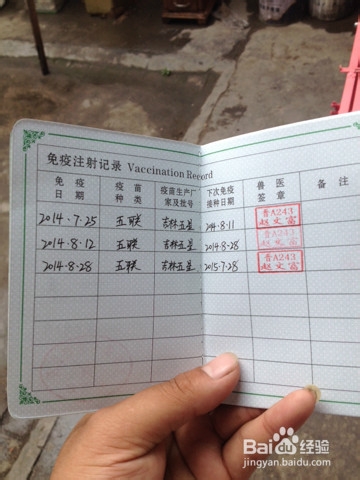 免疫注射记录 Vaccination Record
免疫日期 疫苗种类 疫苗生产厂家及批号 下次免疫接种日期 兽医签章 备注
2014.7.25 五联 吉林五星 2014.8.11 晋A243 赵文富
2014.8.12 五联 吉林五星 2014.8.28 晋A243 赵文富
2014.8.28 五联 吉林五星 2015.7.28 晋A243 赵文富
Baidu经验
jingyan.baidu.com